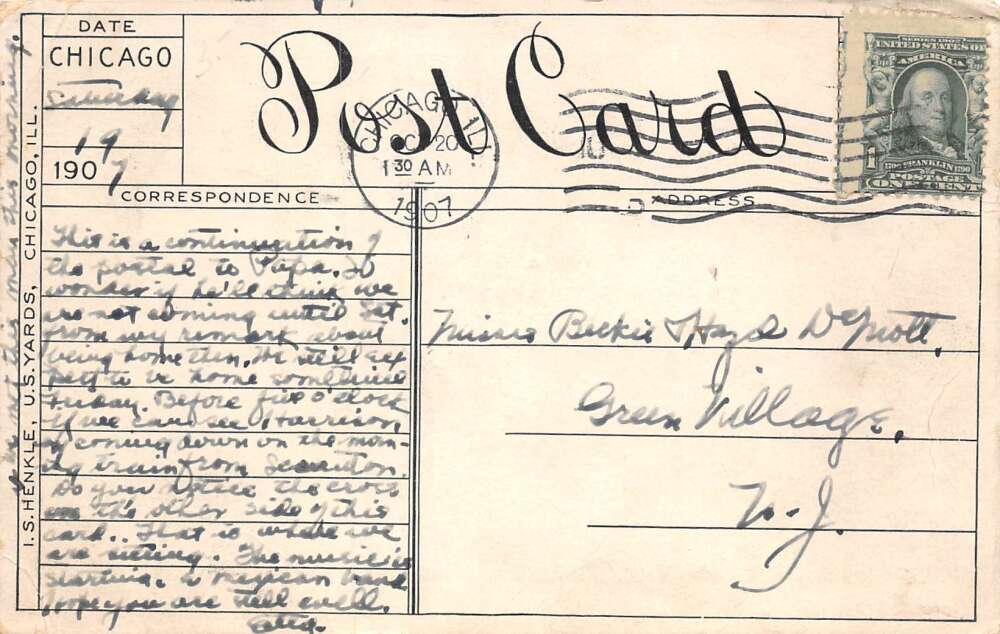 DATE
CHICAGO
Saturday
19
1907
Post Card
CHICAGO, ILL.
OCT 20
1 30 AM
1907
SERIES 1902
UNITED STATES OF
AMERICA
1706 FRANKLIN 1790
POSTAGE
ONE CENT
CORRESPONDENCE
ADDRESS
This is a continuation of
the postal to Papa. I
wonder if he'll think we
are not coming until Sat.
from my remark about
being home then. We still ex
pect to be home sometime
Friday. Before five o'clock
if we can see Harrison,
by coming down on the morn-
ing train from Scranton.
Do you notice the cross
on the other side of this
card.. That is where we
are sitting. The music is
starting. A Mexican band
Hope you are still well.
this morning.
Misses Beckie & Hazel
Green Village,
N.J.
I.S. HENKLE, U.S. YARDS, CHICAGO, ILL.